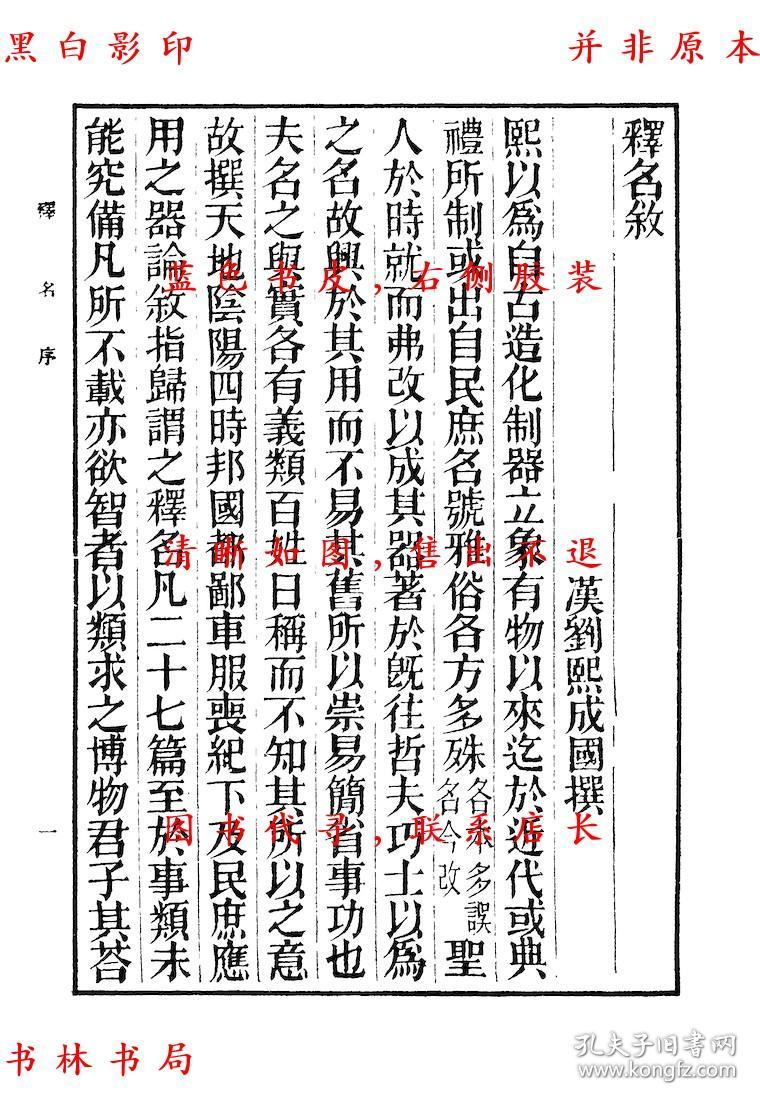 黑白影印
并非原本
釋名敘
漢劉熙成國撰
熙以爲自古造化制器立象有物以來迄於近代或典
禮所制或出自民庶名號雅俗各方多殊各本多誤名今改聖
人於時就而弗改以成其器著於旣往哲夫巧士以爲
之名故興於其用而不易其舊所以崇易簡省事功也
夫名之與實各有義類百姓日稱而不知其所以之意
故撰天地陰陽四時邦國都鄙車服喪紀下及民庶應
用之器論敘指歸謂之釋名凡二十七篇至於事類未
能究備凡所不載亦欲智者以類求之博物君子其荅
釋名序
一
蓝色书皮,右侧胶装
清晰如图,售出不退
因书代寻,联系店长
书林书局
孔夫子旧书网